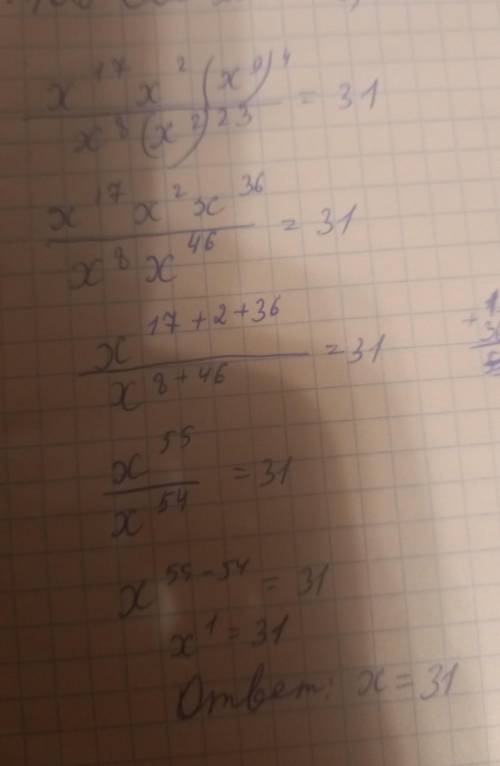 x¹⁷x²(x⁹)⁴ / x⁸(x²)²³ = 31
x¹⁷x²x³⁶ / x⁸x⁴⁶ = 31
x¹⁷⁺²⁺³⁶ / x⁸⁺⁴⁶ = 31
x⁵⁵ / x⁵⁴ = 31
x⁵⁵⁻⁵⁴ = 31
x¹ = 31
Ответ: x = 31